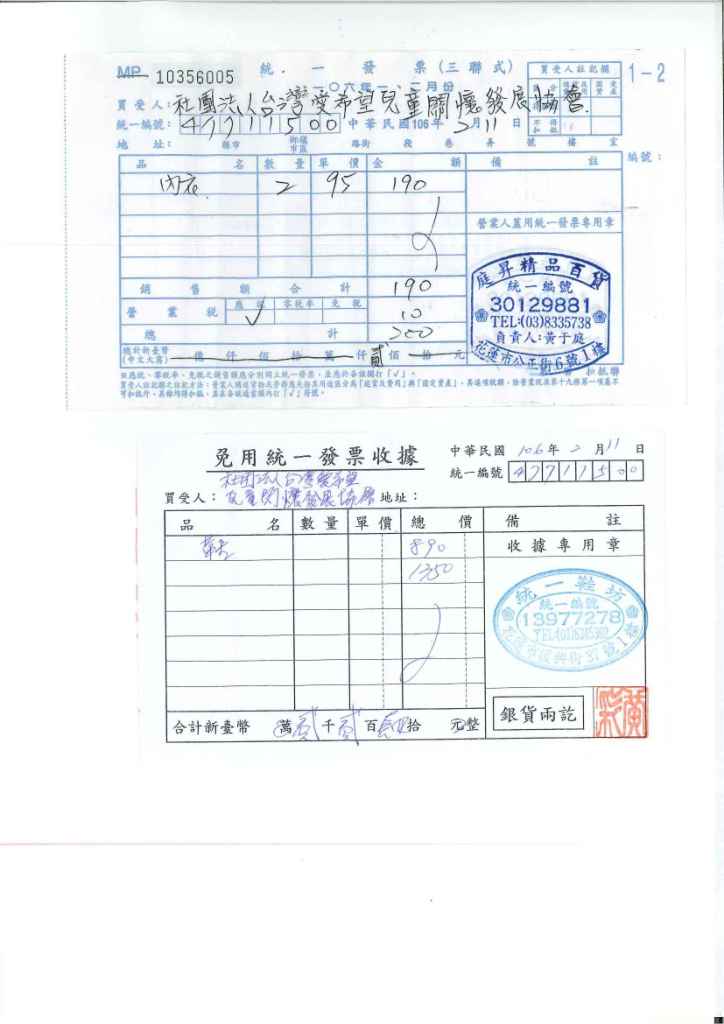 MP 10356005
統一發票(三聯式)
一〇六年 一.二月份
買受人註記欄
1-2
買受人：社團法人台灣愛希望兒童關懷發展協會
統一編號：47711500 中華民國106年2月11日
地 址： 縣市 鄉鎮市區 路街 段 巷 弄 號 樓 室
品 名 數量 單價 金 額 備 註 編號：
內衣 2 95 190
營業人蓋用統一發票專用章
銷 售 額 合 計 190
營 業 稅 應稅 ✓ 零稅率 免稅 10
總 計 200
總計新臺幣
(中文大寫) 億 仟 佰 拾 萬 仟 貳 佰 拾 元
庭昇精品百貨
統一編號
30129881
TEL:(03)8335738
負責人:黃于庭
花蓮市公正街6號1樓
扣抵聯
※應稅、零稅率、免稅之銷售額應分別開立統一發票，並應於各該欄打「✓」。
免用統一發票收據
中華民國 106年 2月11日
統一編號 47711500
買受人：社團法人台灣愛希望
兒童關懷發展協會 地址：
品 名 數量 單價 總 價 備 註
890
1350
收據專用章
統一鞋坊
統一編號
13977278
花蓮市復興街37號1樓
銀貨兩訖
合計新臺幣 萬 貳 千 貳 百 拾 元整